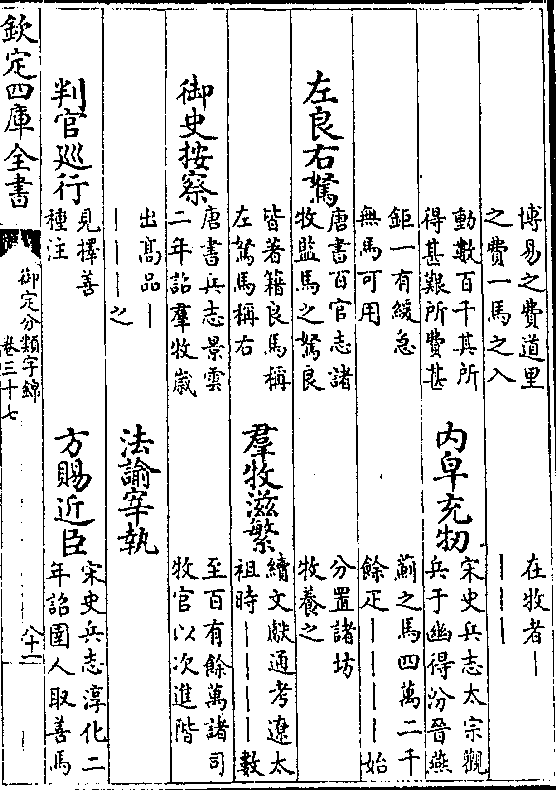 博易之費道里
之費一馬之入
動數百千其所
得甚艱所費甚
鉅一有緩急
無馬可用
左良右駑
唐書百官志諸
牧監馬之駑良
皆著籍良馬稱
左駑馬稱右
御史按察
唐書兵志景雲
二年詔羣牧歲
出髙品｜
｜｜｜之
判官巡行
見擇善
種注
在牧者｜
｜｜｜
內皁充牣
宋史兵志太宗觀
兵于幽得汾晉燕
薊之馬四萬二千
餘疋｜｜｜｜始
分置諸坊
牧養之
羣牧滋繁
續文獻通考遼太
祖時｜｜｜｜數
至百有餘萬諸司
牧官以次進階
法諭宰執
方賜近臣
宋史兵志淳化二
年詔圉人取善馬
欽定四庫全書
御定分類字錦
卷三十七
八十二